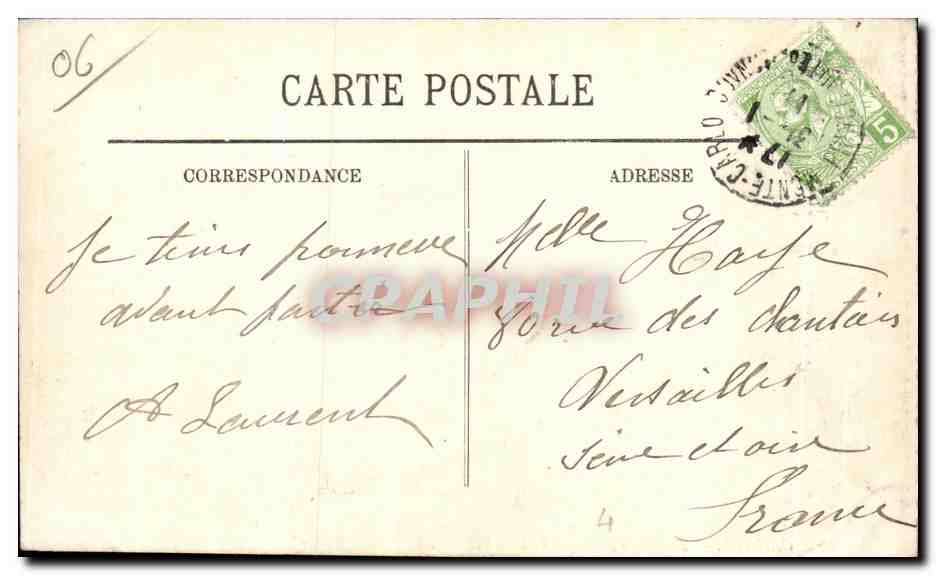 06
CARTE POSTALE
CORRESPONDANCE
ADRESSE
MONTE-CARLO
17
5
Je tiens promesse
avant partir
A Laurent
Mlle Haye
80 rue des Chantiers
Versailles
Seine et oise
France
4
CPAPHIL